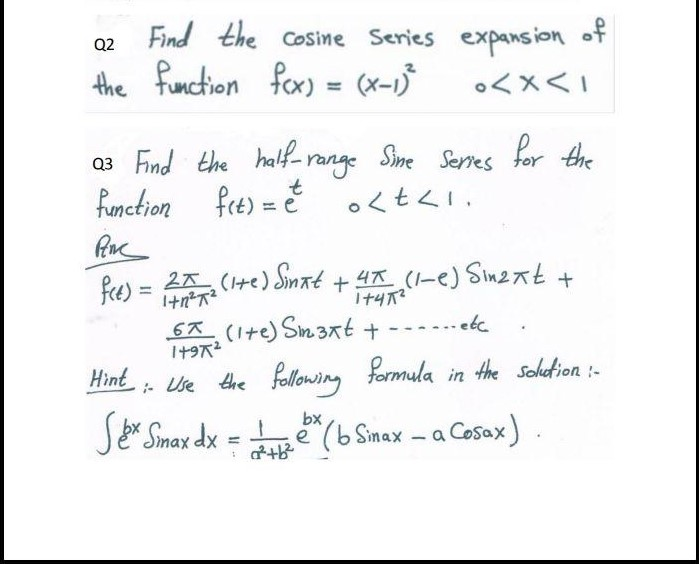 Q2 Find the cosine Series expansion of
the function f(x) = (x-1)² 0<x<1
Q3 Find the half-range Sine Series for the
function f(t) = e^t 0<t<1.
Ans
f(t) = 2π/(1+n²π²) (1+e) Sinπt + 4π/(1+4π²) (1-e) Sin2πt +
6π/(1+9π²) (1+e) Sin3πt + -------etc .
Hint :- Use the following formula in the solution :-
∫e^bx Sinax dx = 1/(a²+b²) e^bx (b Sinax - a Cosax) .